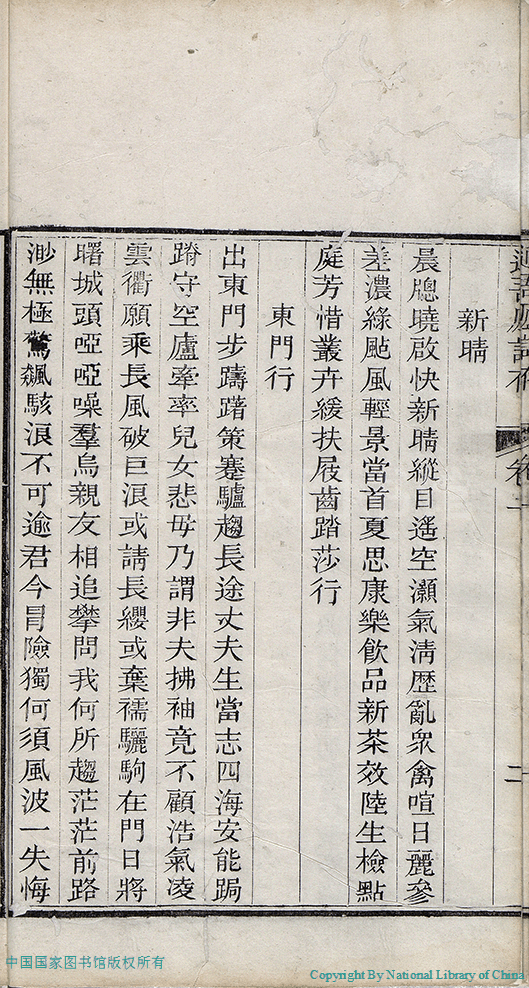 新晴
晨牕曉啟快新晴縱目遙空灝氣淸歷亂眾禽喧日麗參
差濃綠颭風輕景當首夏思康樂飮品新茶效陸生檢點
庭芳惜叢卉緩扶屐齒踏莎行
東門行
出東門步躊躇策蹇驢趨長途丈夫生當志四海安能跼
蹐守空廬牽率兒女悲毋乃謂非夫拂袖竟不顧浩氣凌
雲衢願乘長風破巨浪或請長纓或棄襦驪駒在門日將
曙城頭啞啞噪羣烏親友相追攀問我何所趨茫茫前路
渺無極驚飆駭浪不可逾君今冒險獨何須風波一失悔
卷二
二
中国国家图书馆版权所有
Copyright By National Library of China